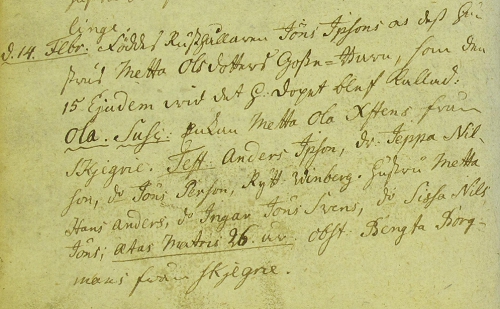 linge.
d. 14. Febr: Föddes Rusthållaren Jöns Ipsons as dess Hu-
strus Metta Olsdotters Gosse-Barn, som den
15 Ejusdem wid det H. Dopet blef kallad:
Ola. Susc: pukan Metta Ola Xstens från
Skjegrie. Test: Anders Ipson, dr. Jeppa Nil-
son, do Jöns Person, Rytt: Winberg. Hustru Metta
Hans Anders, do Ingar Jöns Svens, do Sissa Nils
Jöns; ætas Matris 26. år. obst: Bengta Borg-
mans från Skjegrie.